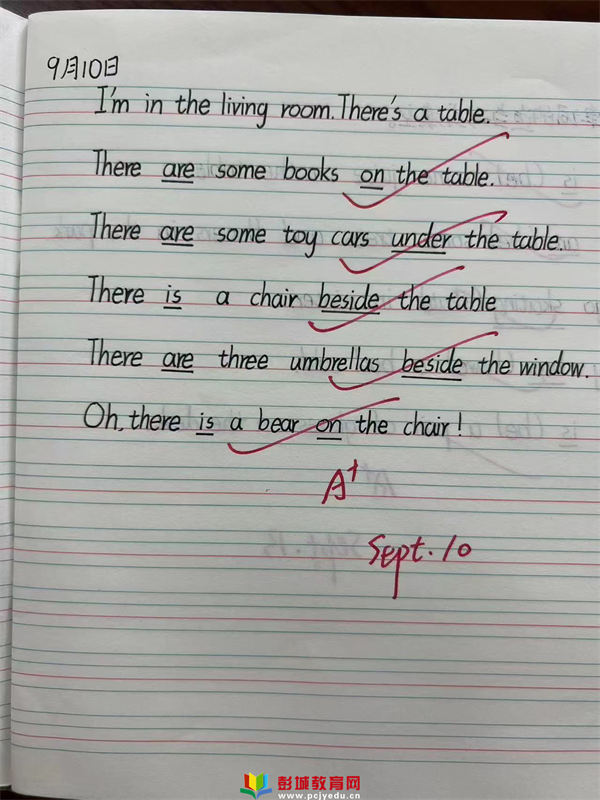 9月10日
I'm in the living room. There's a table.
There are some books on the table.
There are some toy cars under the table.
There is a chair beside the table
There are three umbrellas beside the window.
Oh, there is a bear on the chair!
A+
Sept. 10
彭城教育网
www.pcjyedu.cn